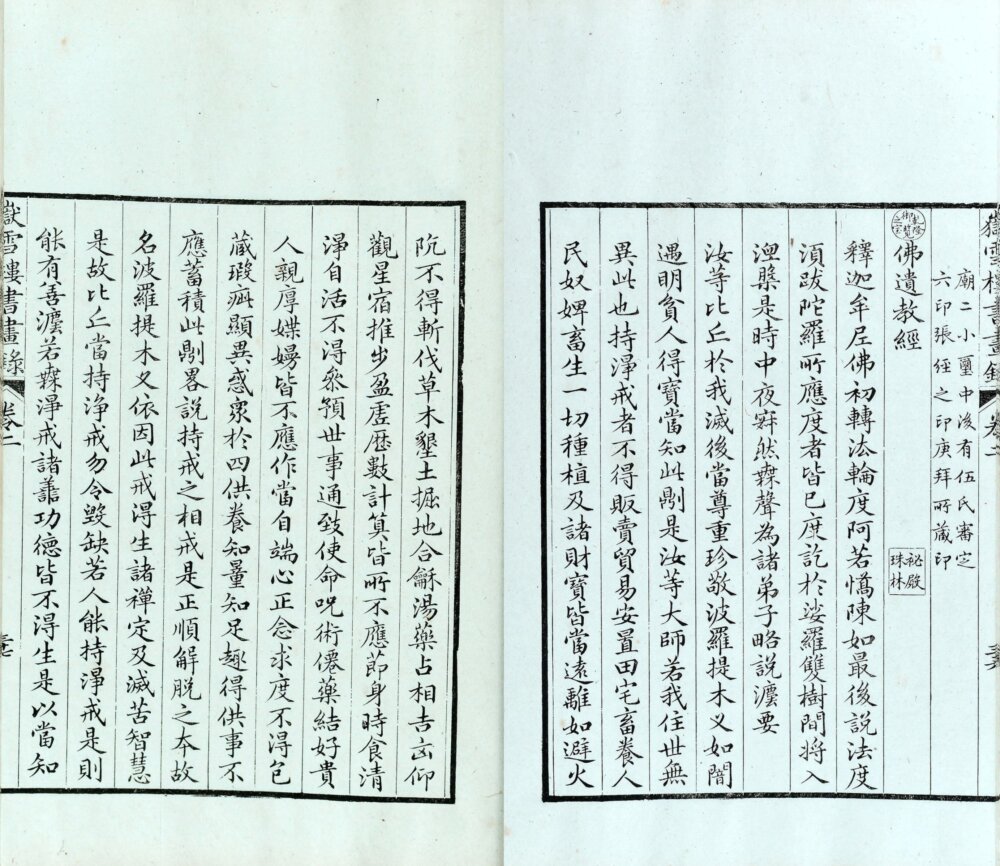 嶽雪樓書畫錄 卷二
廟二小璽中後有伍氏審定
六印張經之印庚拜所藏印
乾隆御覽之寶 佛遺教經 祕殿珠林
釋迦牟尼佛初轉法輪度阿若憍陳如最後說法度
須跋陀羅所應度者皆已度訖於娑羅雙樹間將入
涅槃是時中夜寂然無聲為諸弟子略說灋要
汝等比丘於我滅後當尊重珍敬波羅提木叉如闇
遇明貧人得寶當知此則是汝等大師若我住世無
異此也持淨戒者不得販賣貿易安置田宅畜養人
民奴婢畜生一切種植及諸財寶皆當遠離如避火
阬不得斬伐草木墾土掘地合龢湯藥占相吉凶仰
觀星宿推步盈虛歷數計算皆所不應節身時食清
淨自活不得參預世事通致使命呪術僊藥結好貴
人親厚媟嫚皆不應作當自端心正念求度不得包
藏瑕疵顯異惑眾於四供養知量知足趣得供事不
應蓄積此則略說持戒之相戒是正順解脫之本故
名波羅提木叉依因此戒得生諸禪定及滅苦智慧
是故比丘當持淨戒勿令毀缺若人能持淨戒是則
能有善灋若無淨戒諸善功德皆不得生是以當知
嶽雪樓書畫錄 卷二